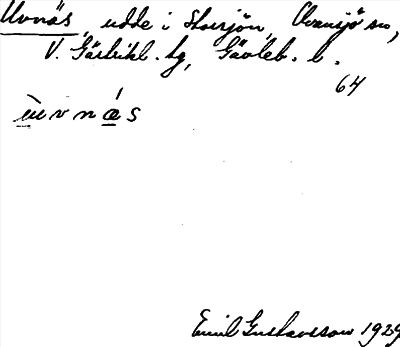 Uvnäs, udde i Storsjön, Ovansjö sn,
V. Gästrikl. tg, Gävleb. l.
64
ùvnás
Emil Gustavsson 1929